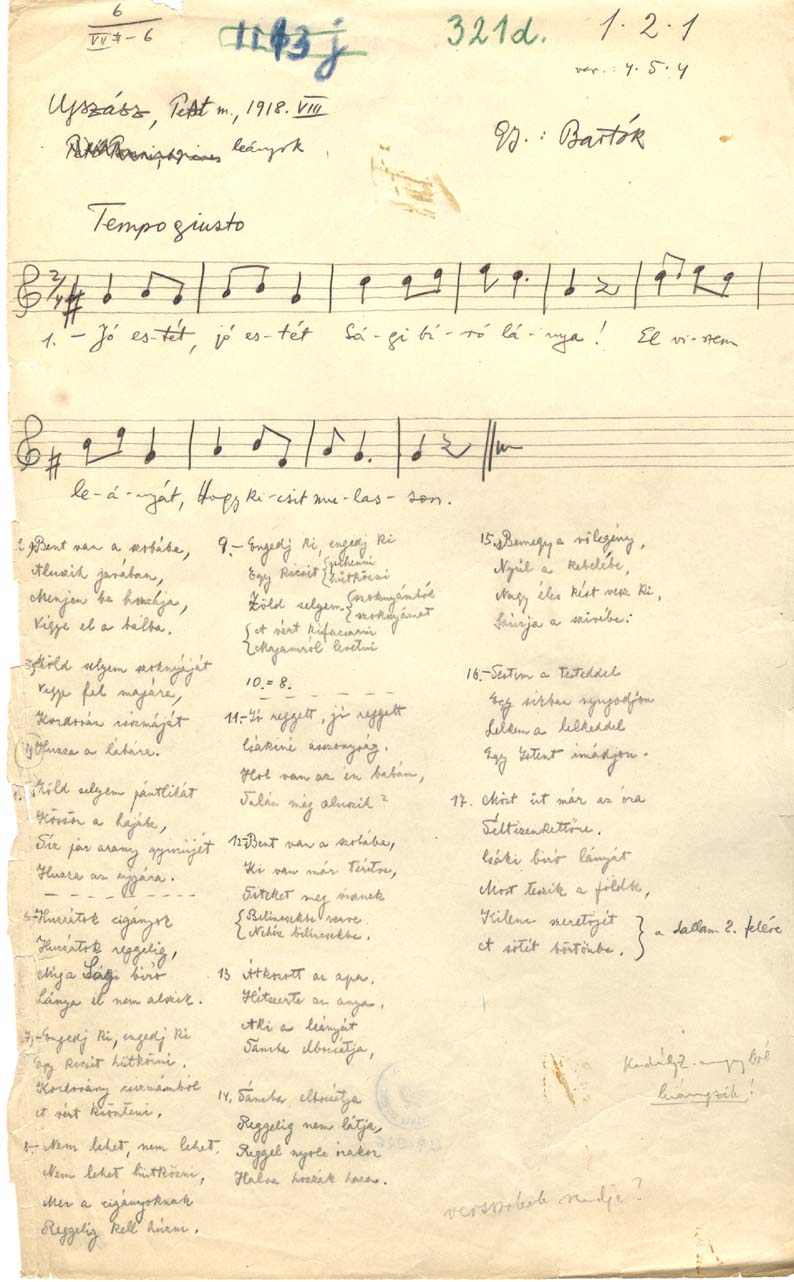 6
VII 4-6
1143j
321d.
1.2.1
var.: 4.5.4
Ujszász, Pest m., 1918. VIII
leányok
Gy.: Bartók
Tempo giusto
2/4
1. – Jó es-tét, jó es-tét Sá-gi bí-ró lá-nya! El vi-szem
le-á-nyát, Hogy ki-csit mu-las-son.
2. Bent van a szobába,
Aluszik javában,
Menjen be hozzája,
Vigye el a bálba.
3. Zöld selyem szoknyáját
Vegye fel magára,
Kordován csizmáját
Huzza a lábára.
Zöld selyem pántlikát
Kössön a haján,
Tíz pár arany gyürüjét
Huzza az ujjára.
6. Huzzátok cigányok
Huzzátok reggelig,
Míg a Sági bíró
Lánya el nem alszik.
7. – Engedj ki, engedj ki
Egy kicsit hütközni,
Kordovány csizmámból
A vért kiönteni.
8. – Nem lehet, nem lehet
Nem lehet hütközni,
Mer a cigányoknak
Reggelig kell húzni.
9. – Engedj ki, engedj ki
Egy kicsit {pihenni
{hütközni
Zöld selyem {szoknyámból
{szoknyámat
{A vért kifacsarni
{Magamról levetni
10. = 8.
11. – Jó reggelt, jó reggelt
Csákiné asszonyság.
Hol van az én babám,
Talán még aluszik?
12. – Bent van a szobába,
Ki van már terítve,
Titeket meg visznek
{Bilincsekbe verve.
{Nehéz bilincsekbe.
13 Átkozott az apa,
Hétszerte az anya,
Aki a leányát
Táncba elbocsátja,
14. Táncba elbocsátja
Reggelig nem látja,
Reggel nyolc órakor
Halva hozzák haza.
15. Bemegy a vőlegény,
Nyúl a kebelébe,
Nagy éles kést vesz ki,
Szúrja a szivébe:
16. – Testem a testeddel
Egy sírban nyugodjon
Lelkem a lelkeddel
Egy Istent imádjon.
17. Most üt már az óra
Féltizenkettőre.
Csáki bíró lányát
Most teszik a földbe,
Kilenc szeretőjét
A sötét börtönbe. } a dallam 2. felére
Kodály Z.
hiányzik!
versszakok rendje?